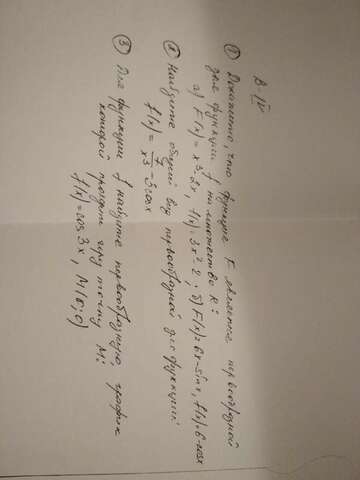 В-IV
① Докажите, что функция F является первообразной
для функции f на множестве R:
а) F(x) = x³-2x, f(x)=3x²-2; б) F(x)=6x-sinx, f(x)=6-cosx
② Найдите общий вид первообразной для функций
f(x) = 7/x³ - 3cosx
③ Для функции f найдите первообразную график
которой проходит через точку M:
f(x)=cos3x, M(0;0)